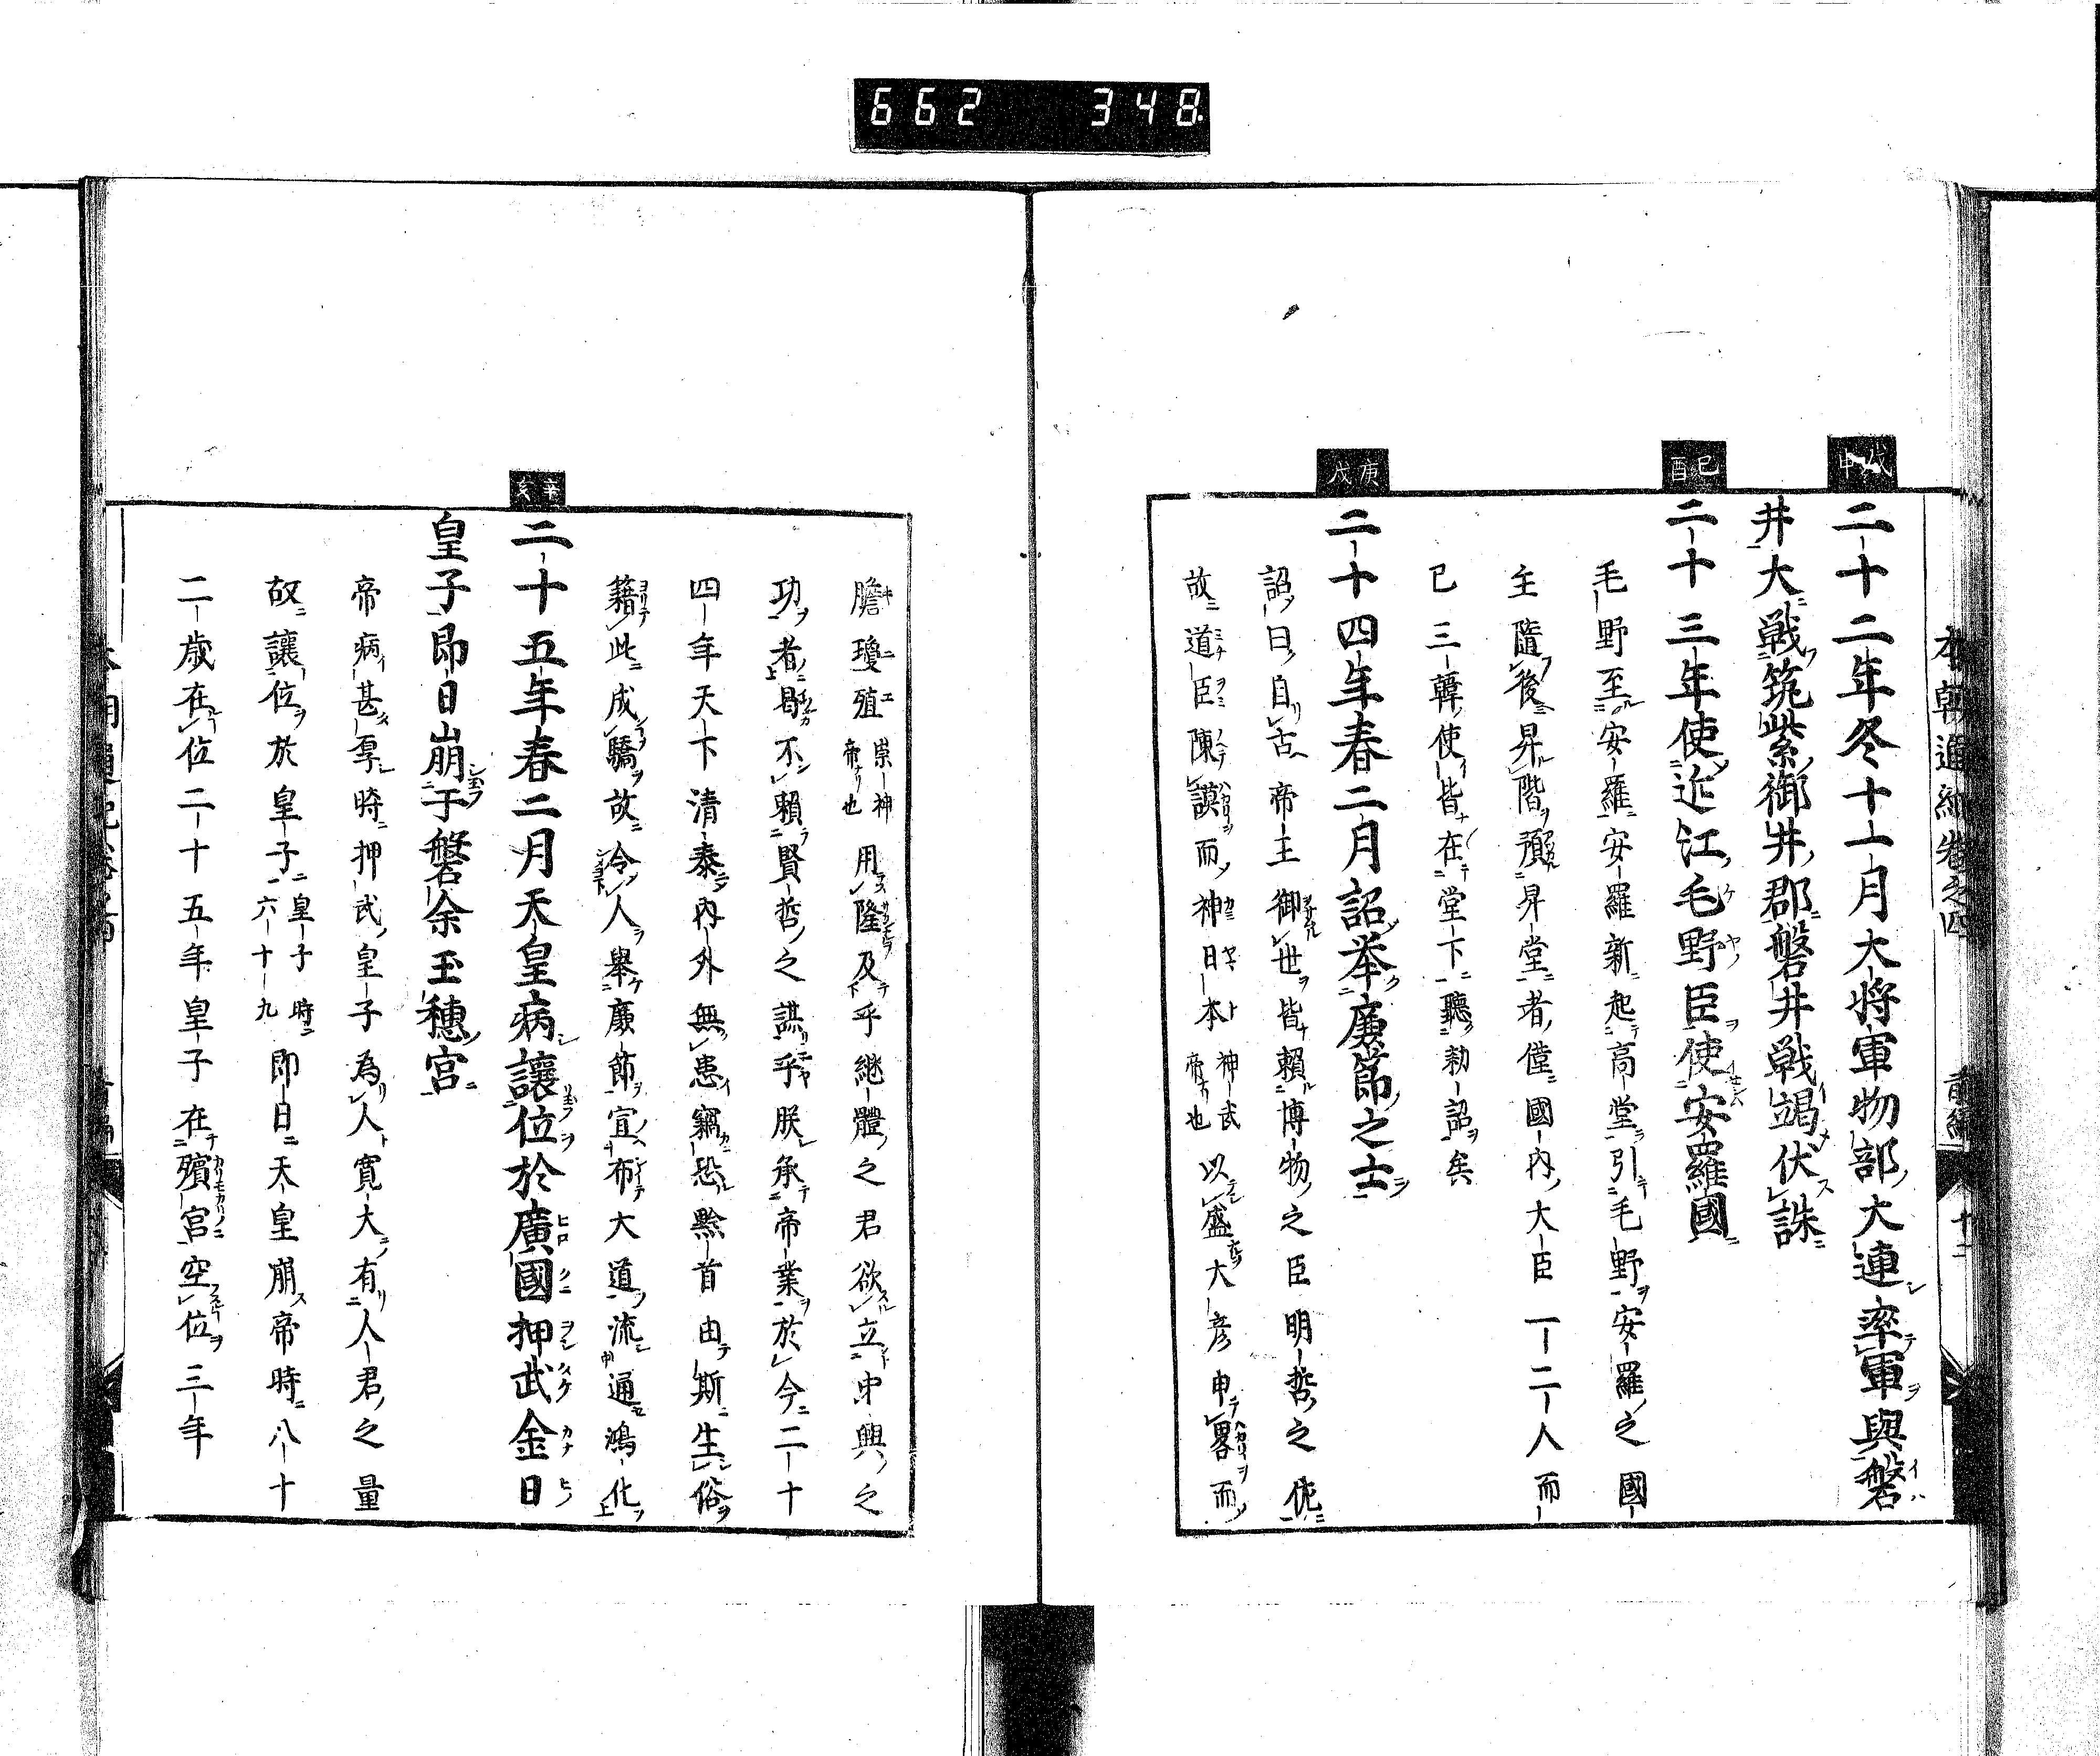 662 348
戊申
二十二年冬十一月大将軍物部大連率軍與磐
井大戦筑紫御井郡磐井戦竭伏誅
己酉
二十三年使近江毛野臣使安羅國
毛野至安羅安羅新起高堂引毛野安羅之國
主隨後昇階預昇堂者僅國内大臣一二人而
已三韓使皆在堂下聽勅詔矣
庚戌
二十四年春二月詔举廉節之士
詔曰自古帝王御世皆賴博物之臣明哲之佐
故道臣陳謨而神日本神武帝也以盛大彦申畧而
膽瓊殖崇神帝也用隆及乎継體之君欲立中興之
功者曷不賴賢哲之謀乎朕承帝業於今二十
四年天下清泰内外無患竊恐黔首由斯生俗
藉此成驕故令人舉廉節宣布大道流通鴻化
辛亥
二十五年春二月天皇病讓位於廣國押武金日
皇子即日崩于磐余玉穗宮
帝病甚厚時押武皇子為人寛大有人君之量
故讓位於皇子皇子時六十九即日天皇崩帝時八十
二歳在位二十五年皇子在殯宮空位三年